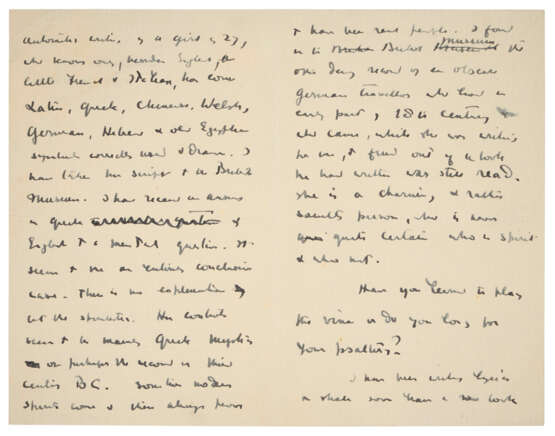 automatic writing of a girl of 27,
who knows only, besides English, a
little French & Italian, has come
Latin, Greek, Chinese, Welsh,
German, Hebrew & old Egyptian
symbols correctly used & drawn. I
have taken her script to the British
Museum. I have received an answer
in Greek &
English to a mental question. It
seems to me an entirely conclusive
case. There is no explanation
but the spiritistic. Her controls
seem to be mainly Greek mystics
or perhaps the second or third
century BC. Sometimes modern
spirits come & then always prove
to have been real people. I found
in the British Museum the
one day record of an obscure
German traveller who lived in
early part of 18th century
who came, while she was writing
for me, to find out if a book
he had written was still read.
She is a charming, & rather
saintly person, who is never
quite certain who is spirit
& who not.
Have you learned to play
the vina or do you long for
your psaltery?
I have been writing lyrics
& shall soon have a new book